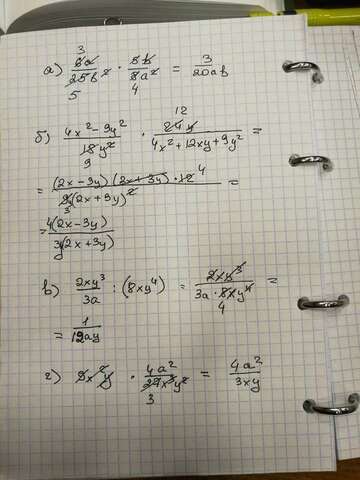 3
а) 6a/25b² · 5b/8a² = 3/20ab
5 4
12
б) 4x²-9y²/18y² · 24y/4x²+12xy+9y² =
9
= (2x-3y)(2x+3y)·12 4/9y(2x+3y)² =
3
= 4(2x-3y)/3y(2x+3y)
в) 2xy³/3a : (8xy⁴) = 2xy³/3a·8xy⁴ =
4
= 1/12ay
г) 9x²y · 4a²/27x³y² = 4a²/3xy
3